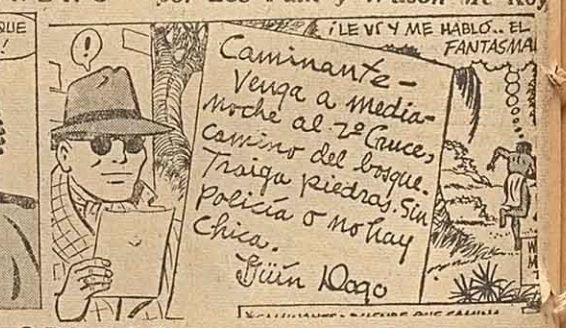 por Lee Falk y Wilson Mc
QUE
!
!
Caminante-
Venga a media-
noche al 2º Cruce,
camino del bosque.
Traiga piedras. Sin
policía o no hay
chica.
Güin Dago
¡LE VÍ Y ME HABLÓ.. EL
FANTASMA